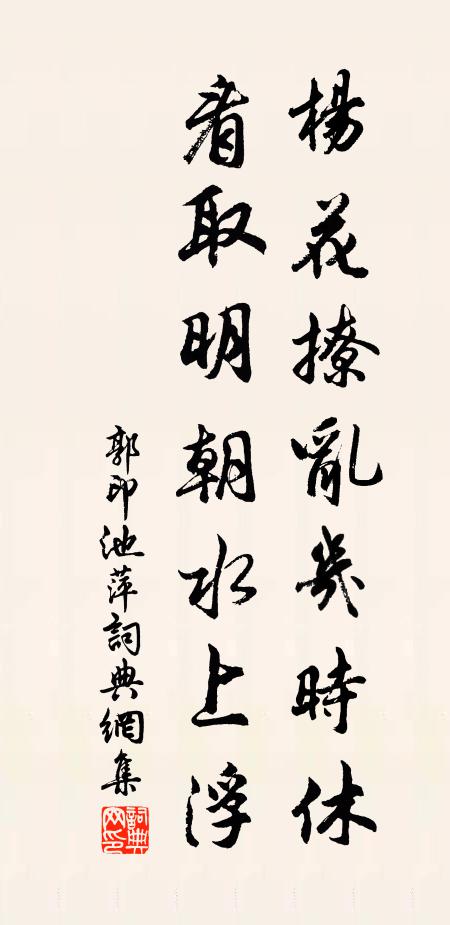 楊花撩亂幾時休
看取明朝水上浮
郭印池萍詞典網集
詞典網印